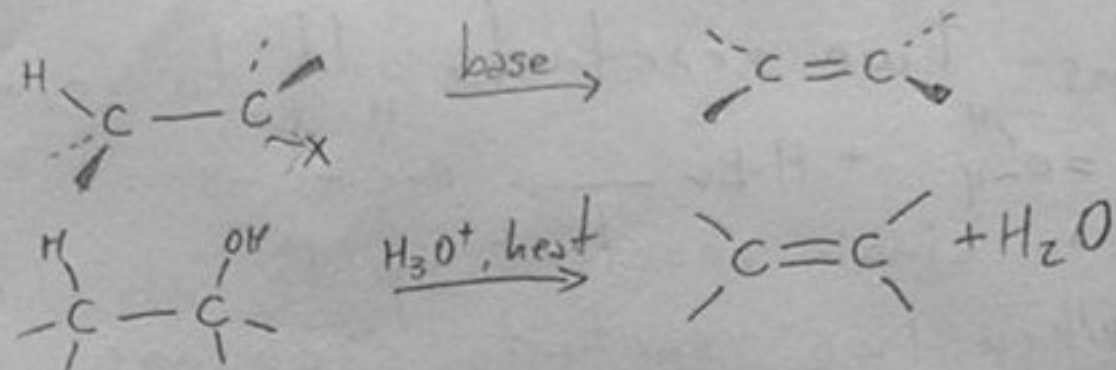 H
C — C
X
base
C = C
H OH
C — C
H₃O⁺, heat
C = C + H₂O